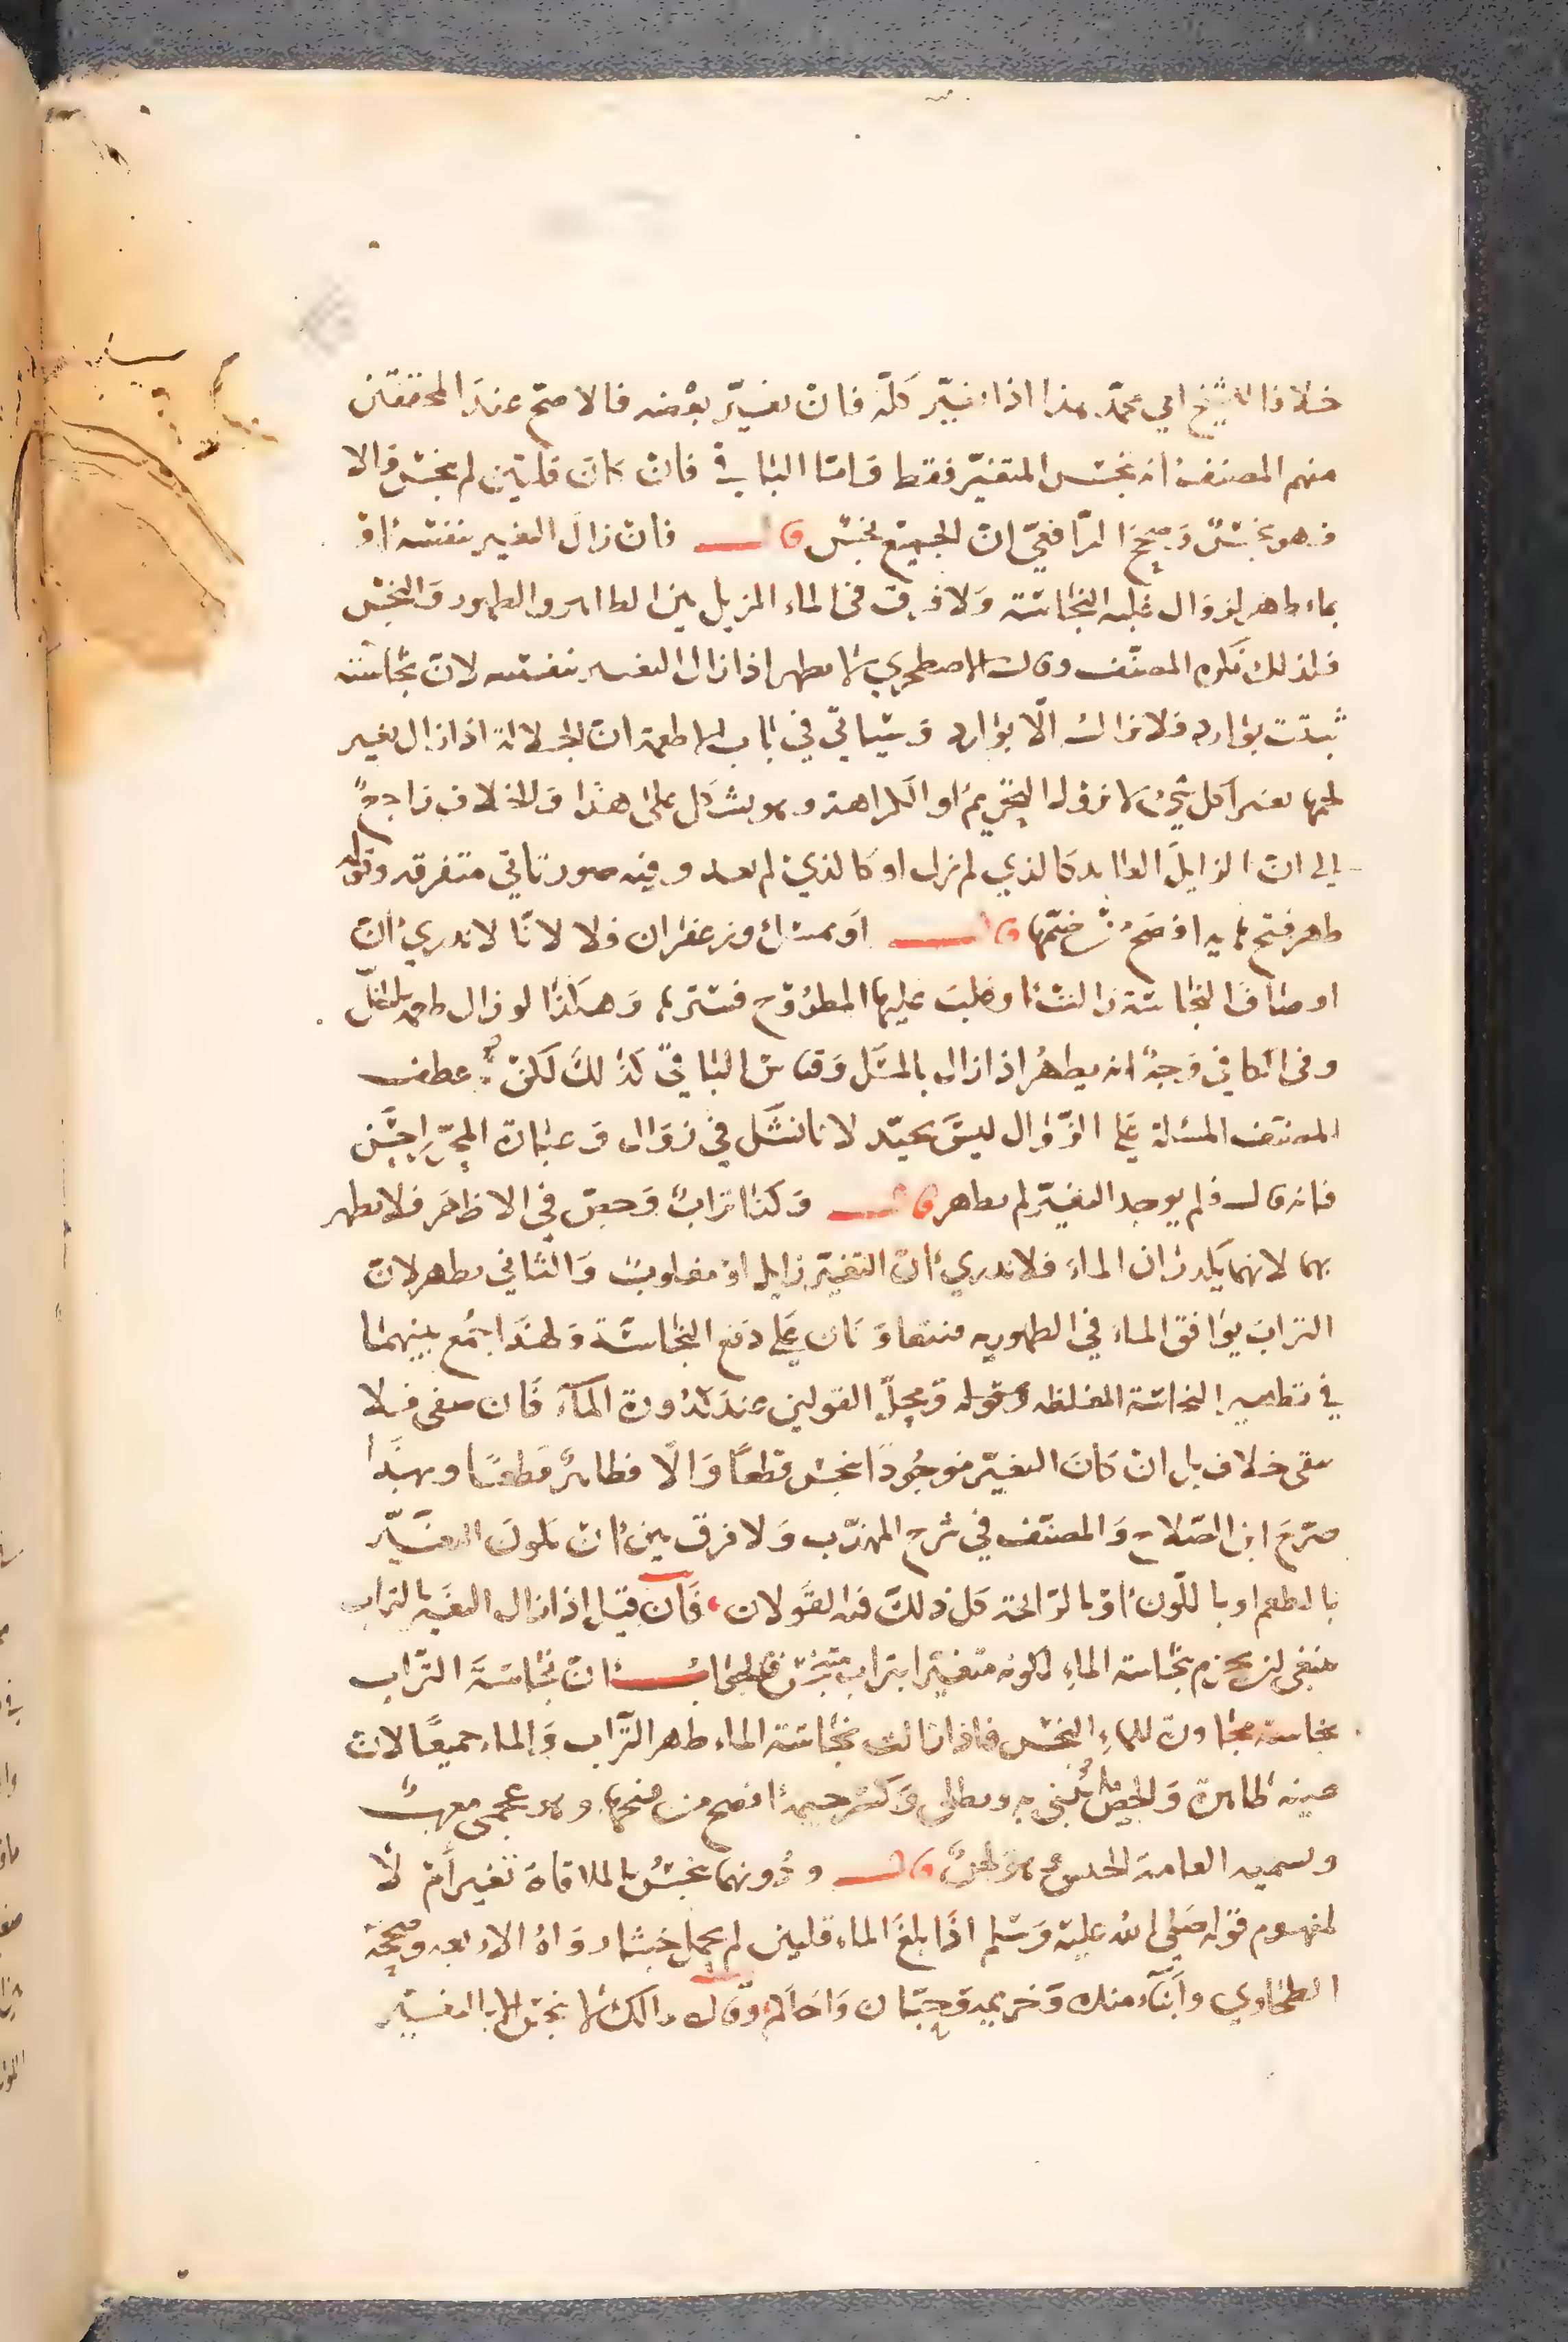 خلافا للشيخ ابي محمد هذا اذا تغير كله فان تغير بعضه فالاصح عند المحققين
منهم المصنف انه نجس المتغير فقط فاما الباقي فان كان قلتين لم ينجس والا
فهو نجس وصحح الرافعي ان الجميع نجس قال فان زال التغير بنفسه او
بماء طهر لزوال غلبه النجاسة ولا فرق في الماء المزيل بين الطاهر والطهور والنجس
فلذلك نكره المصنف وقال الاصطخري لا يطهر اذا زال التغير بنفسه لان نجاسته
ثبتت بوارد فلا تزال الا بوارد وسياتي في باب الاطعمة ان الجلالة اذا زال تغير
لحمها بغير اكل شي لا تزول التحريم او الكراهة وهو يشكل على هذا والخلاف راجع
الى ان الزايل العايد كالذي لم يزل او كالذي لم يعد وفيه صور تاتي متفرقه وقوله
طهر فتح هايه افصح من ضمها قال او بمسك وزعفران فلا لانا لا ندري ان
اوصاف النجاسة زالت او غلب عليها المطروح فسترها وهكذا لو زال طعمه بالخل
وفي الكافي وجه انه يطهر اذا زال بالمسك وقياس الباقي كذلك لكن عطف
المصنف المسئلة على الزوال ليس بجيد لانا نشك في زواله وعبارة المحرر احسن
فانه قال ولم يوجد التغير لم يطهر قال وكذا تراب وجص في الاظهر فلا يطهر
بهما لانهما يكدران الماء فلا ندري ان التغير زايل او مغلوب والثاني يطهر لان
التراب يوافق الماء في الطهوريه فيتعاونان على دفع النجاسة ولهذا يجمع بينهما
في تطهير النجاسة المغلظه وقوله ومحل القولين عند كدورة الماء فان صفى فلا
يبقى خلاف بل ان كان التغير موجودا نجس قطعا والا فطاهر قطعا وبهذا
صرح ابن الصلاح والمصنف في شرح المهذب ولا فرق بين ان يكون التغير
بالطعم او باللون او بالرائحة كل ذلك فيه القولان فان قيل اذا زال التغير بالتراب
فينبغي ان يجزم بنجاسة الماء لكونه متغيرا بتراب متنجس فالجواب ان نجاسة التراب
نجاسة مجاورة للماء النجس فاذا زالت نجاسة الماء طهر التراب والماء جميعا لان
عينه طاهرة والجص ما يبنى به ويطلى وكسر جيمه افصح من فتحها وهو عجمي معرب
وتسميه العامة الجبس وهو لحن قال ودونهما نجس بالملاقاة تغير ام لا
لمفهوم قوله صلى الله عليه وسلم اذا بلغ الماء قلتين لم يحمل خبثا رواه الاربعه وصححه
الطحاوي وابنا منده وخزيمه وحبان والحاكم وقال مالك لا ينجس الا بالتغير